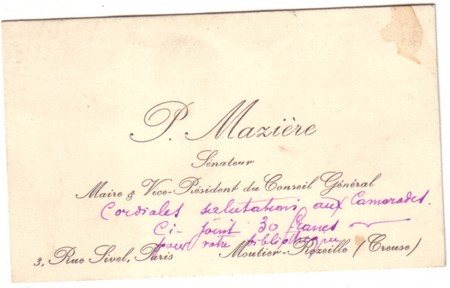 P. Mazière
Sénateur
Maire & Vice-Président du Conseil Général
Cordiales salutations aux Camarades.
Ci-joint 30 francs
pour votre bibliothèque
3, Rue Sivel, Paris Moutier-Rozeille (Creuse)